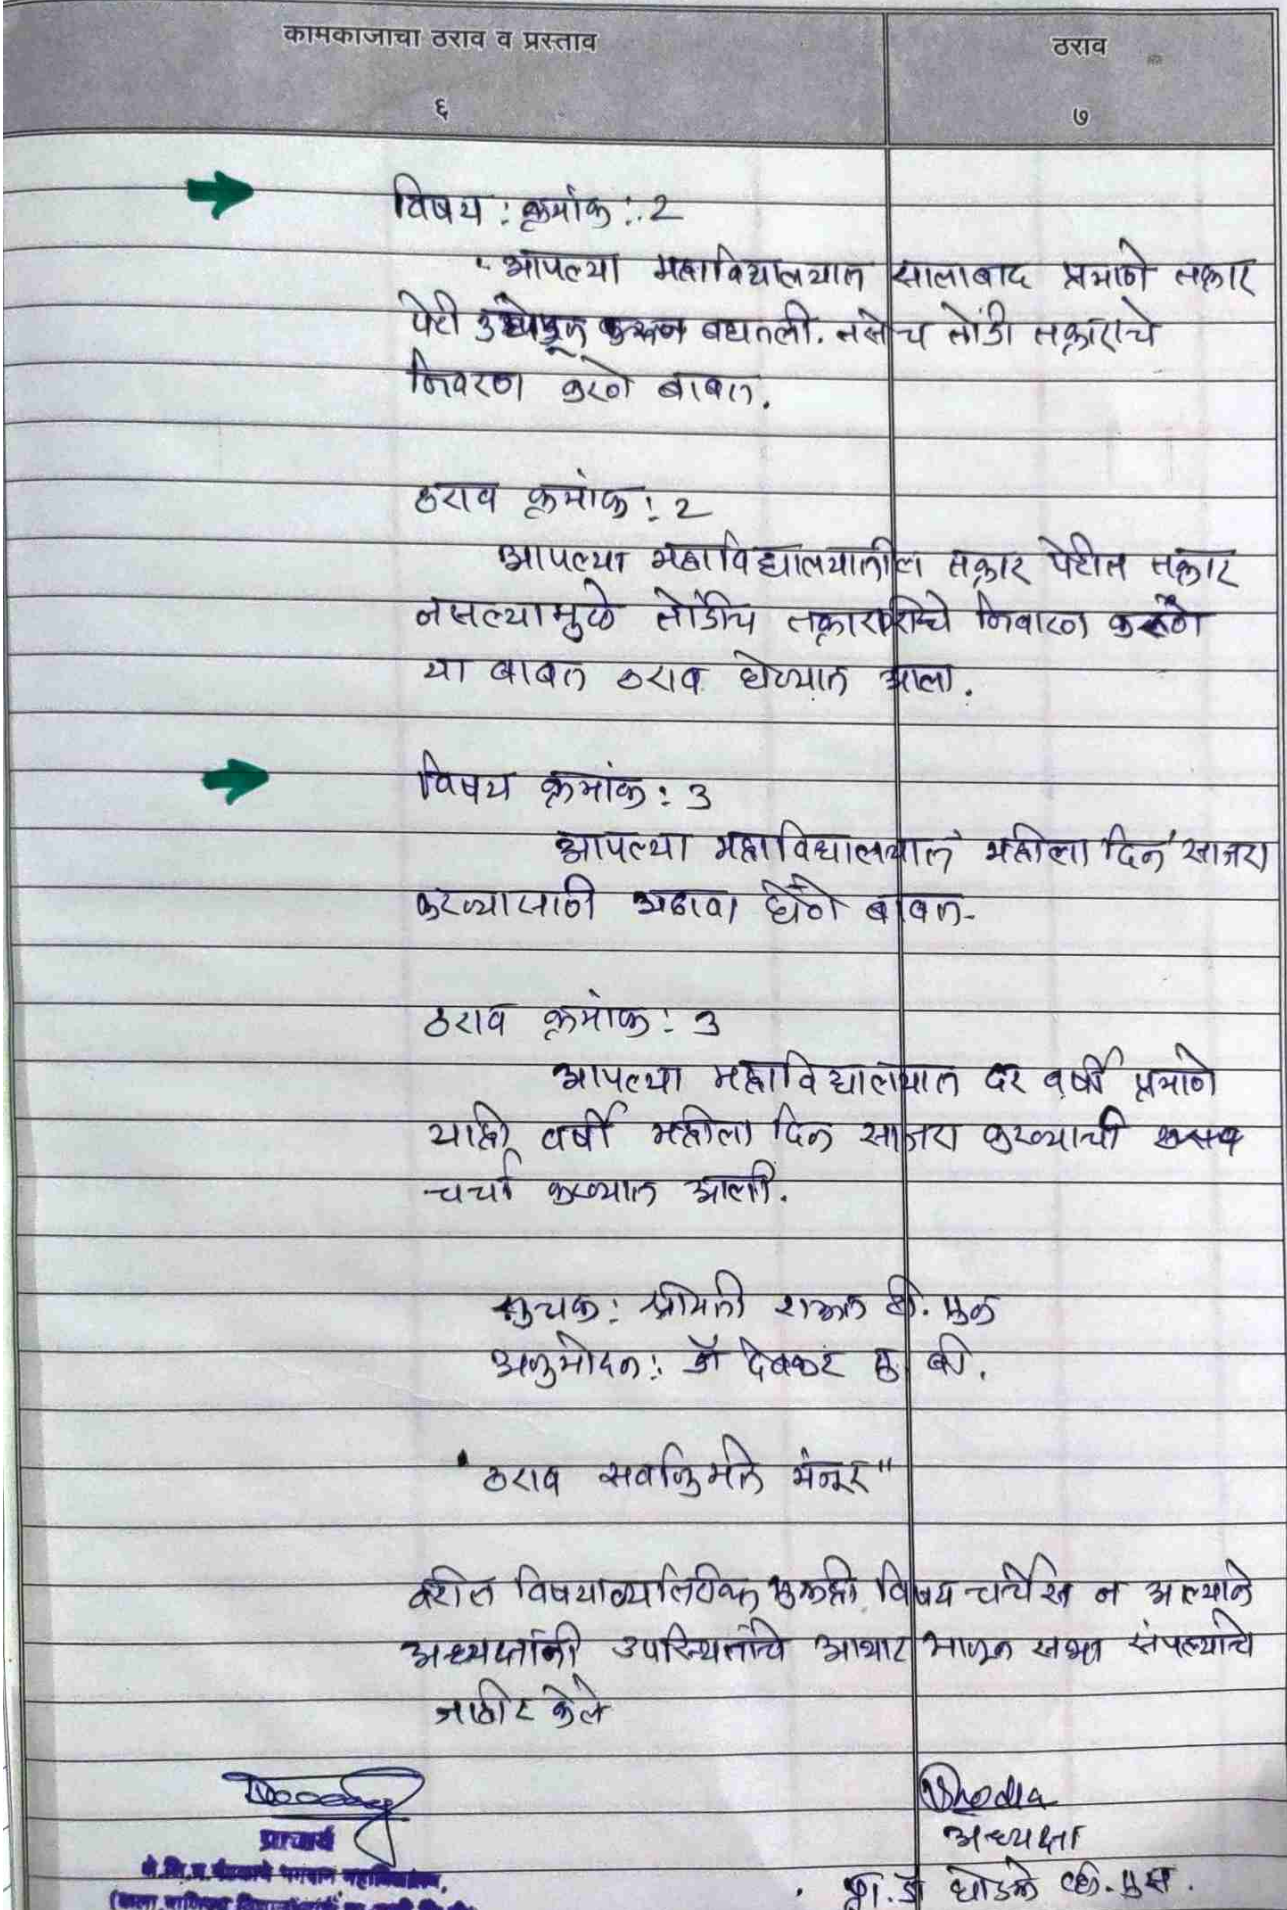 कामकाजाचा ठराव व प्रस्ताव
ठराव
६
७
विषय : क्रमांक : 2
" आपल्या महाविद्यालयात सालाबाद प्रमाणे तक्रार
पेटी बघातली. तसेच तोंडी तक्राराचे
निवरण करणे बाबत.
ठराव क्रमांक : 2
आपल्या महाविद्यालयातील तक्रार पेटीत तक्रार
नसल्यामुळे तोंडीच निवारण करणे
या बाबत ठराव घेण्यात आला.
विषय क्रमांक : 3
आपल्या महाविद्यालयात 'महीला दिन' साजरा
करण्यासाठी आढावा घेणे बाबत-
ठराव क्रमांक : 3
आपल्या महाविद्यालयात दर वर्षी प्रमाणे
याही वर्षी महीला दिन साजरा करण्याची
चर्चा करण्यात आली.
सुचक : श्रीमती
अनुमोदन : डॉ देवकर बी.
" ठराव सर्वानुमते मंजूर "
वरील विषयाव्यतिरिक्त एकही विषय चर्चेस न आल्याने
अध्यक्षांनी उपस्थितांचे आभार मानून सभा संपल्याचे
जाहीर केले
अध्यक्षा
प्राचार्य
प्रा. डॉ घोडके व्ही. एस.